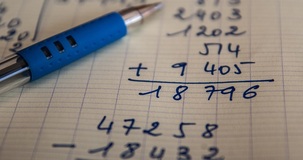 2403
1202
514
+ 9405
18796
47258
- 18432